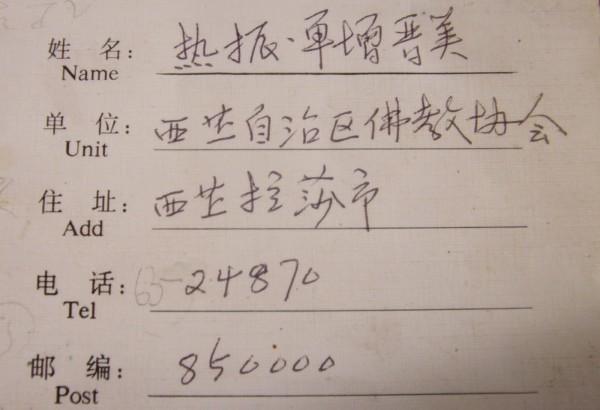 姓 名: 热振·单增晋美
Name
单 位: 西芷自治区佛教协会
Unit
住 址: 西芷拉莎市
Add
电 话: 63-24870
Tel
邮 编: 850000
Post